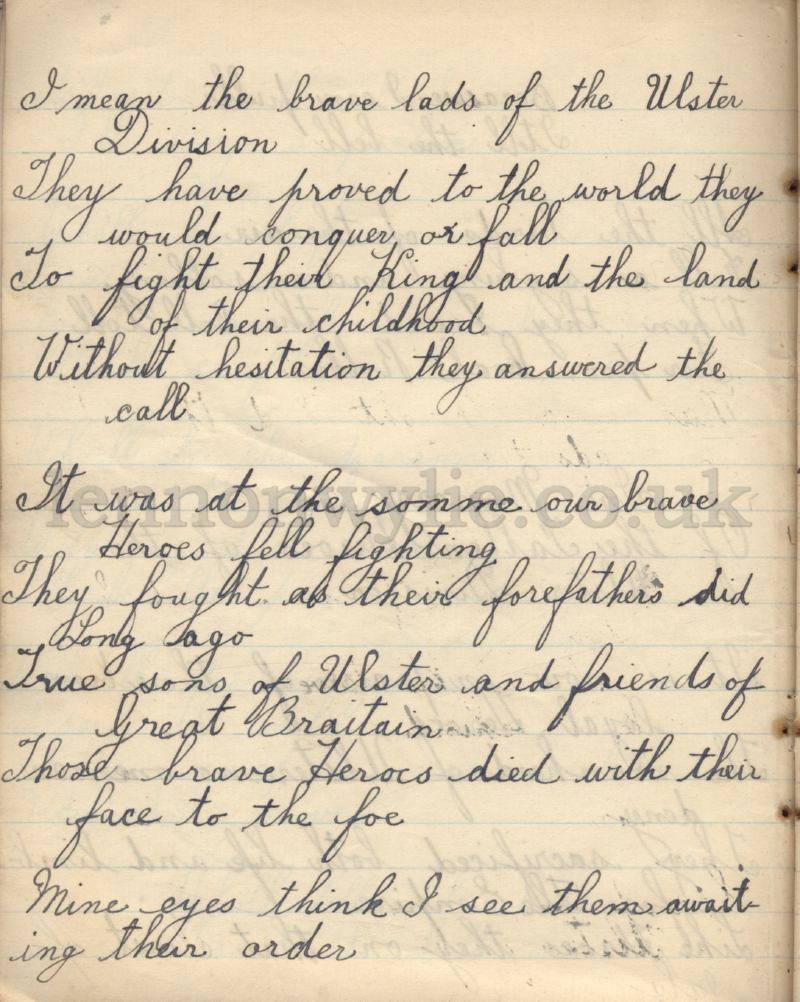 I mean the brave lads of the Ulster
Division
They have proved to the world they
would conquer or fall
To fight their King and the land
of their childhood
Without hesitation they answered the
call
It was at the somme our brave
Heroes fell fighting
They fought as their forefathers did
Long ago
True sons of Ulster and friends of
Great Braitain
Those brave Heroes died with their
face to the foe
Mine eyes think I see them await-
ing their order
lennonwylie.co.uk